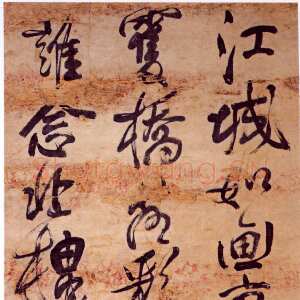 江城如画
雙橋落彩
誰念北樓